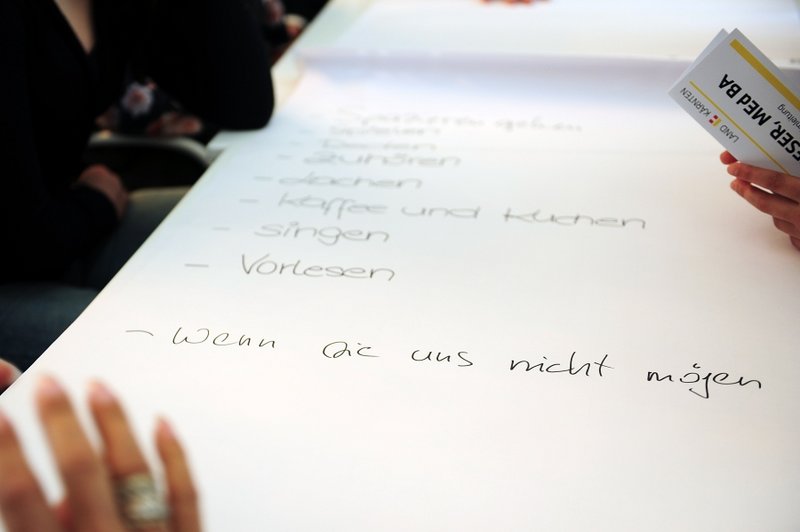 Spazieren gehen
- spielen
- Basteln
- zuhören
- lachen
- Kaffee und Kuchen
- singen
- Vorlesen
- Wenn Sie uns nicht mögen
LAND KÄRNTEN
ESER, MEd BA